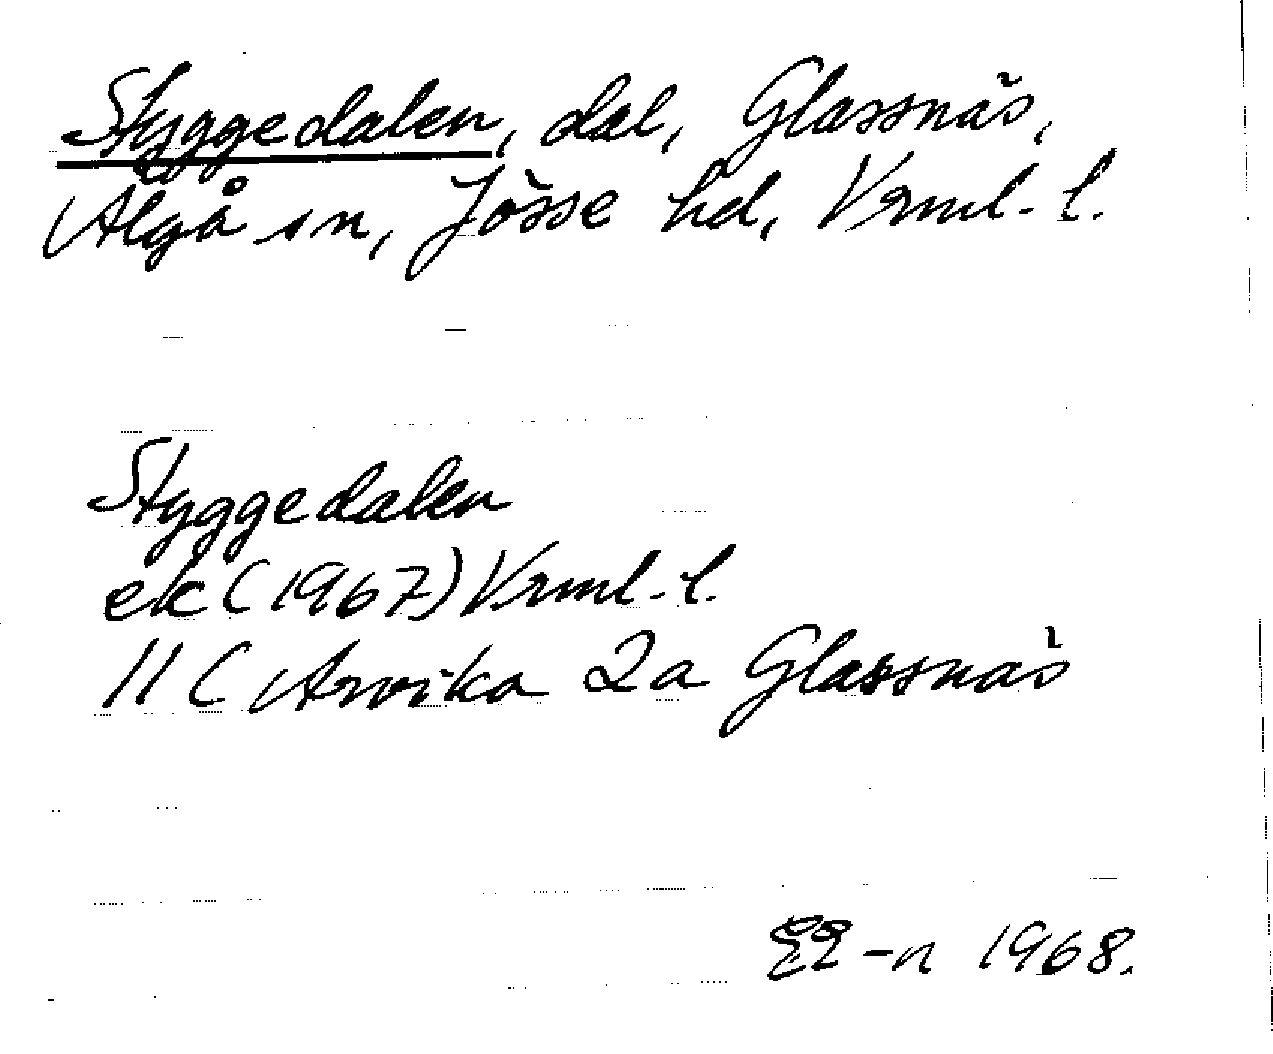 Styggedalen, dal, Glassnäs,
Älgå sn, Jösse hd, Vrml. l.
Styggedalen
ek (1967) Vrml. l.
11 C Arvika 2a Glassnäs
-n 1968.